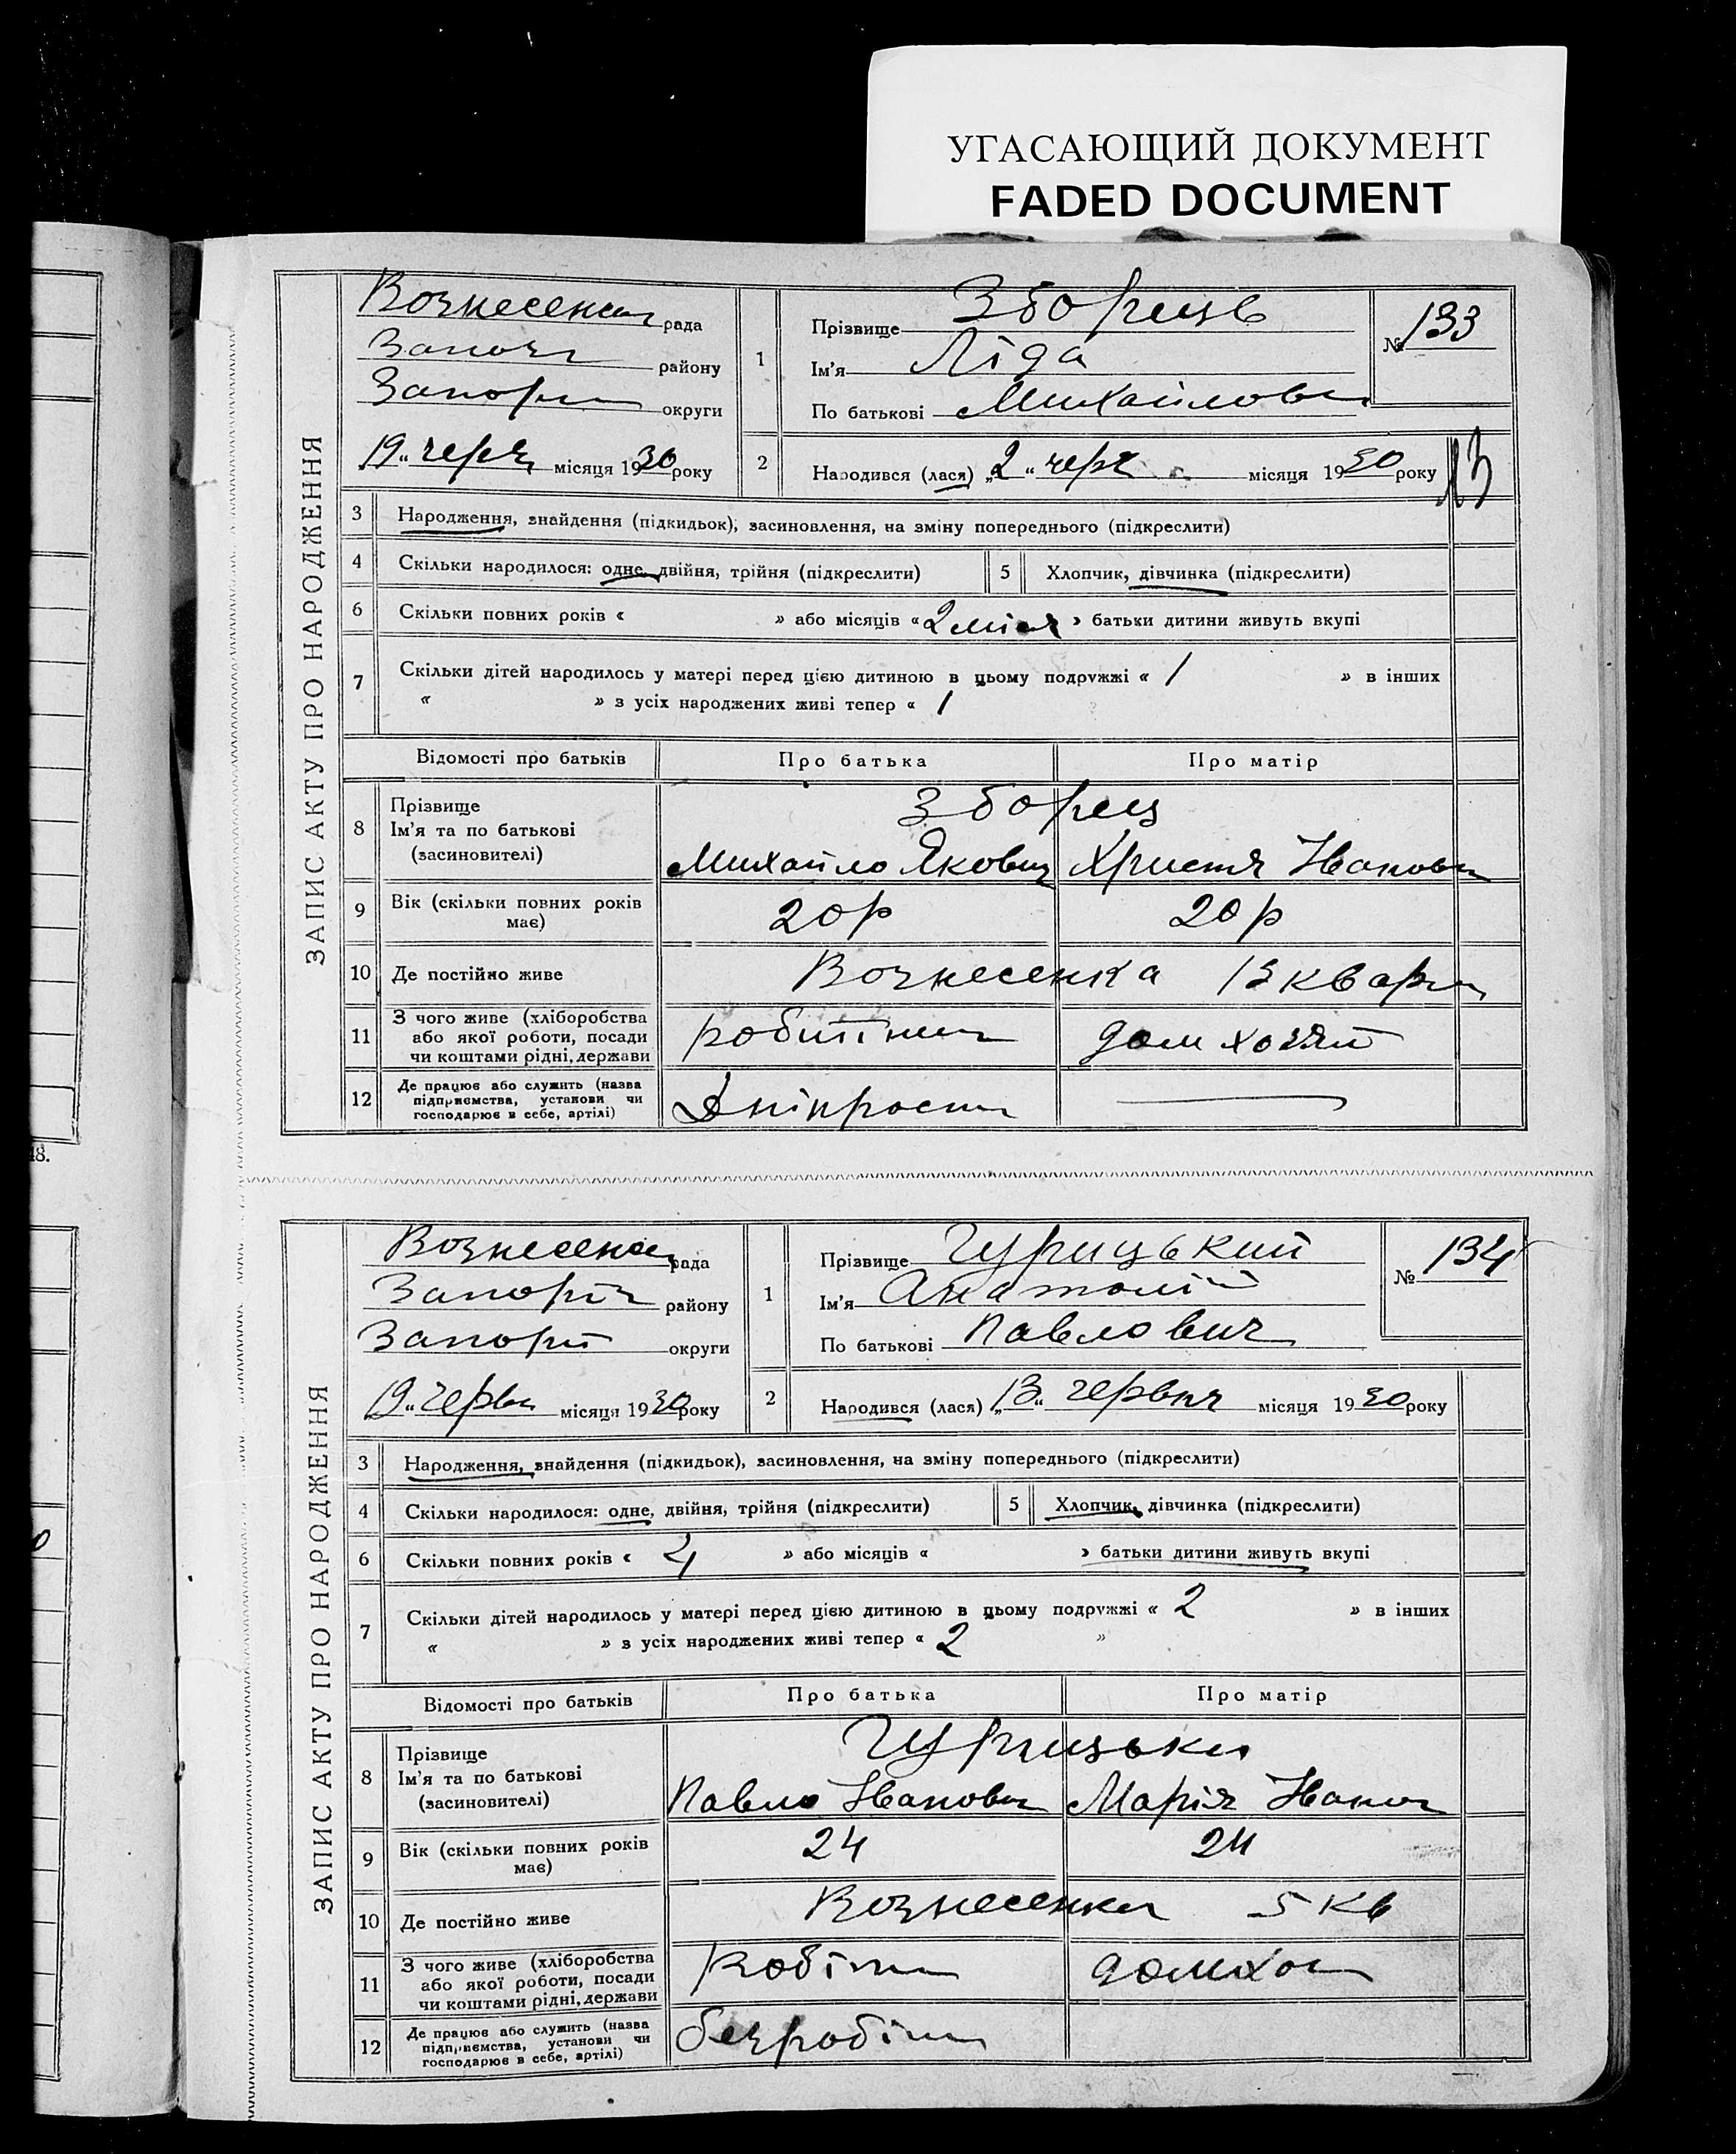 УГАСАЮЩИЙ ДОКУМЕНТ
FADED DOCUMENT
48.
ЗАПИС АКТУ ПРО НАРОДЖЕННЯ
Вознесенка рада
Запоріз району
Запоріз округи
19 " черв місяця 1930 року
1
Прізвище Зборець
Ім'я Ліда
По батькові Михайловн
№ 133
2
Народився (лася) „2 " черв місяця 1930 року
13
3 Народження, знайдення (підкидьок), засиновлення, на зміну попереднього (підкреслити)
4 Скільки народилося: одне, двійня, трійня (підкреслити) 5 Хлопчик, дівчинка (підкреслити)
6 Скільки повних років « » або місяців « 2 міся » батьки дитини живуть вкупі
7 Скільки дітей народилось у матері перед цією дитиною в цьому подружжі « 1 » в інших
« » з усіх народжених живі тепер « 1
Відомості про батьків Про батька Про матір
8 Прізвище
Ім'я та по батькові
(засиновителі)
Зборец
Михайло Якович Христя Іванови
9 Вік (скільки повних років
має)
20 р 20 р
10 Де постійно живе Вознесенка 13 кварт
11 З чого живе (хліборобства
або якої роботи, посади
чи коштами рідні, держави
робітник дом хозяй
12 Де працює або служить (назва
підприємства, установи чи
господарює в себе, артілі)
Дніпрост
ЗАПИС АКТУ ПРО НАРОДЖЕННЯ
Вознесенка рада
Запоріз району
Запорі округи
19 " червн місяця 1930 року
1
Прізвище Гурицький
Ім'я Анатолій
По батькові Павлович
№ 134
2
Народився (лася) „13 " червня місяця 1930 року
3 Народження, знайдення (підкидьок), засиновлення, на зміну попереднього (підкреслити)
4 Скільки народилося: одне, двійня, трійня (підкреслити) 5 Хлопчик, дівчинка (підкреслити)
6 Скільки повних років « 4 » або місяців « » батьки дитини живуть вкупі
7 Скільки дітей народилось у матері перед цією дитиною в цьому подружжі « 2 » в інших
« » з усіх народжених живі тепер « 2 »
Відомості про батьків Про батька Про матір
8 Прізвище
Ім'я та по батькові
(засиновителі)
Гурицьки
Павло Іванович Марія Іванов
9 Вік (скільки повних років
має)
24 24
10 Де постійно живе Вознесенка 5 кв
11 З чого живе (хліборобства
або якої роботи, посади
чи коштами рідні, держави
робітни домхоз
12 Де працює або служить (назва
підприємства, установи чи
господарює в себе, артілі)
безробітн